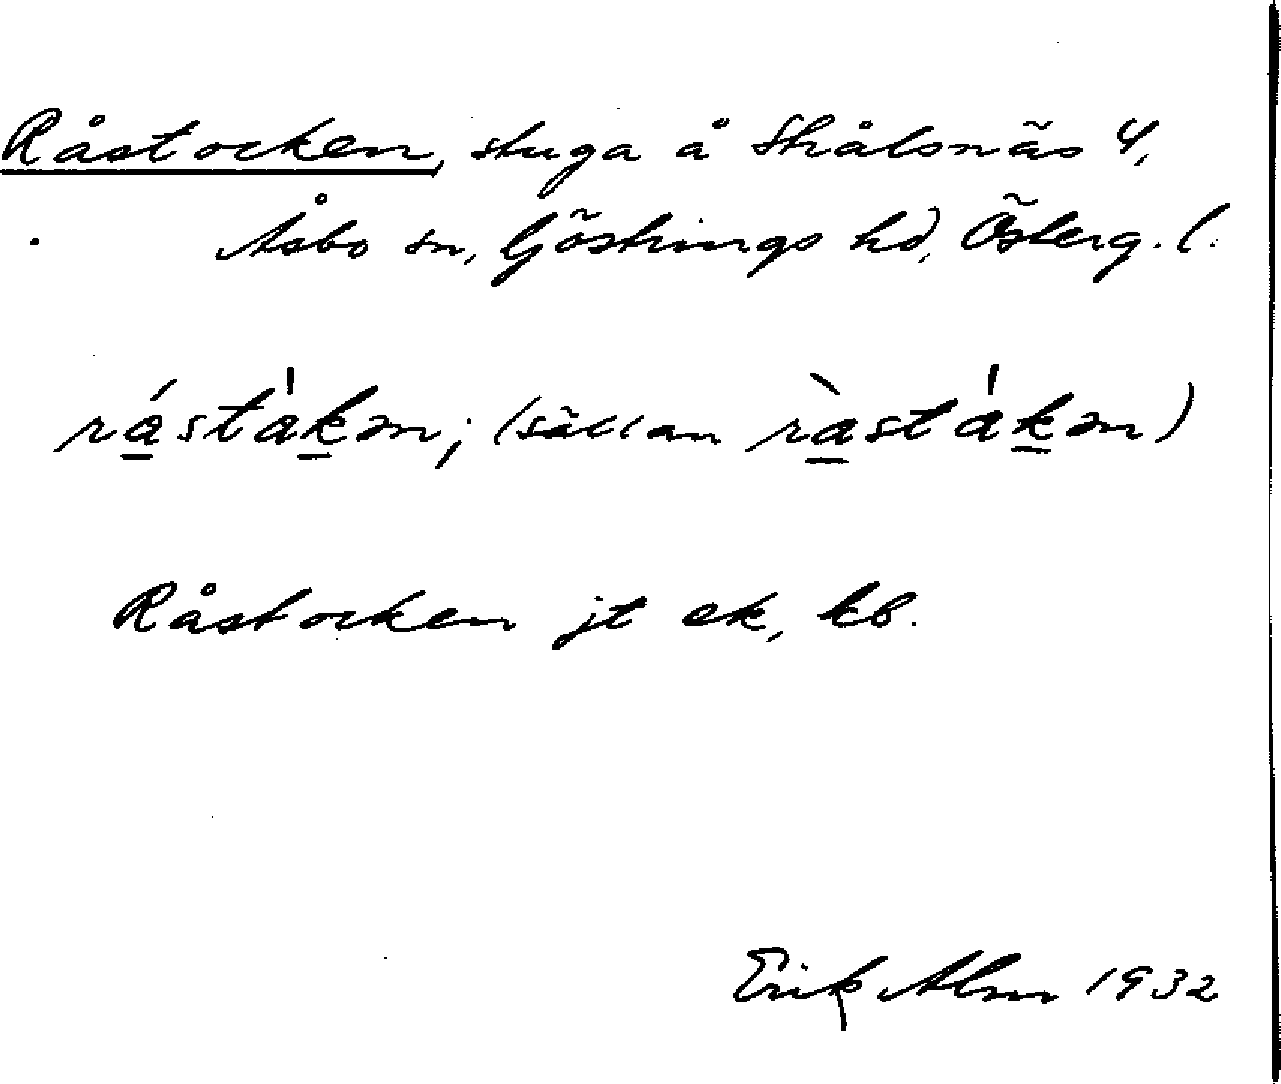 Råstocken, stuga å Skålsnäs 4,
Åsbo sn, Göstrings hd, Österg. l.
rástàkən; (sällan ràstákən)
Råstocken jt ek, kb.
Erik Alm 1932